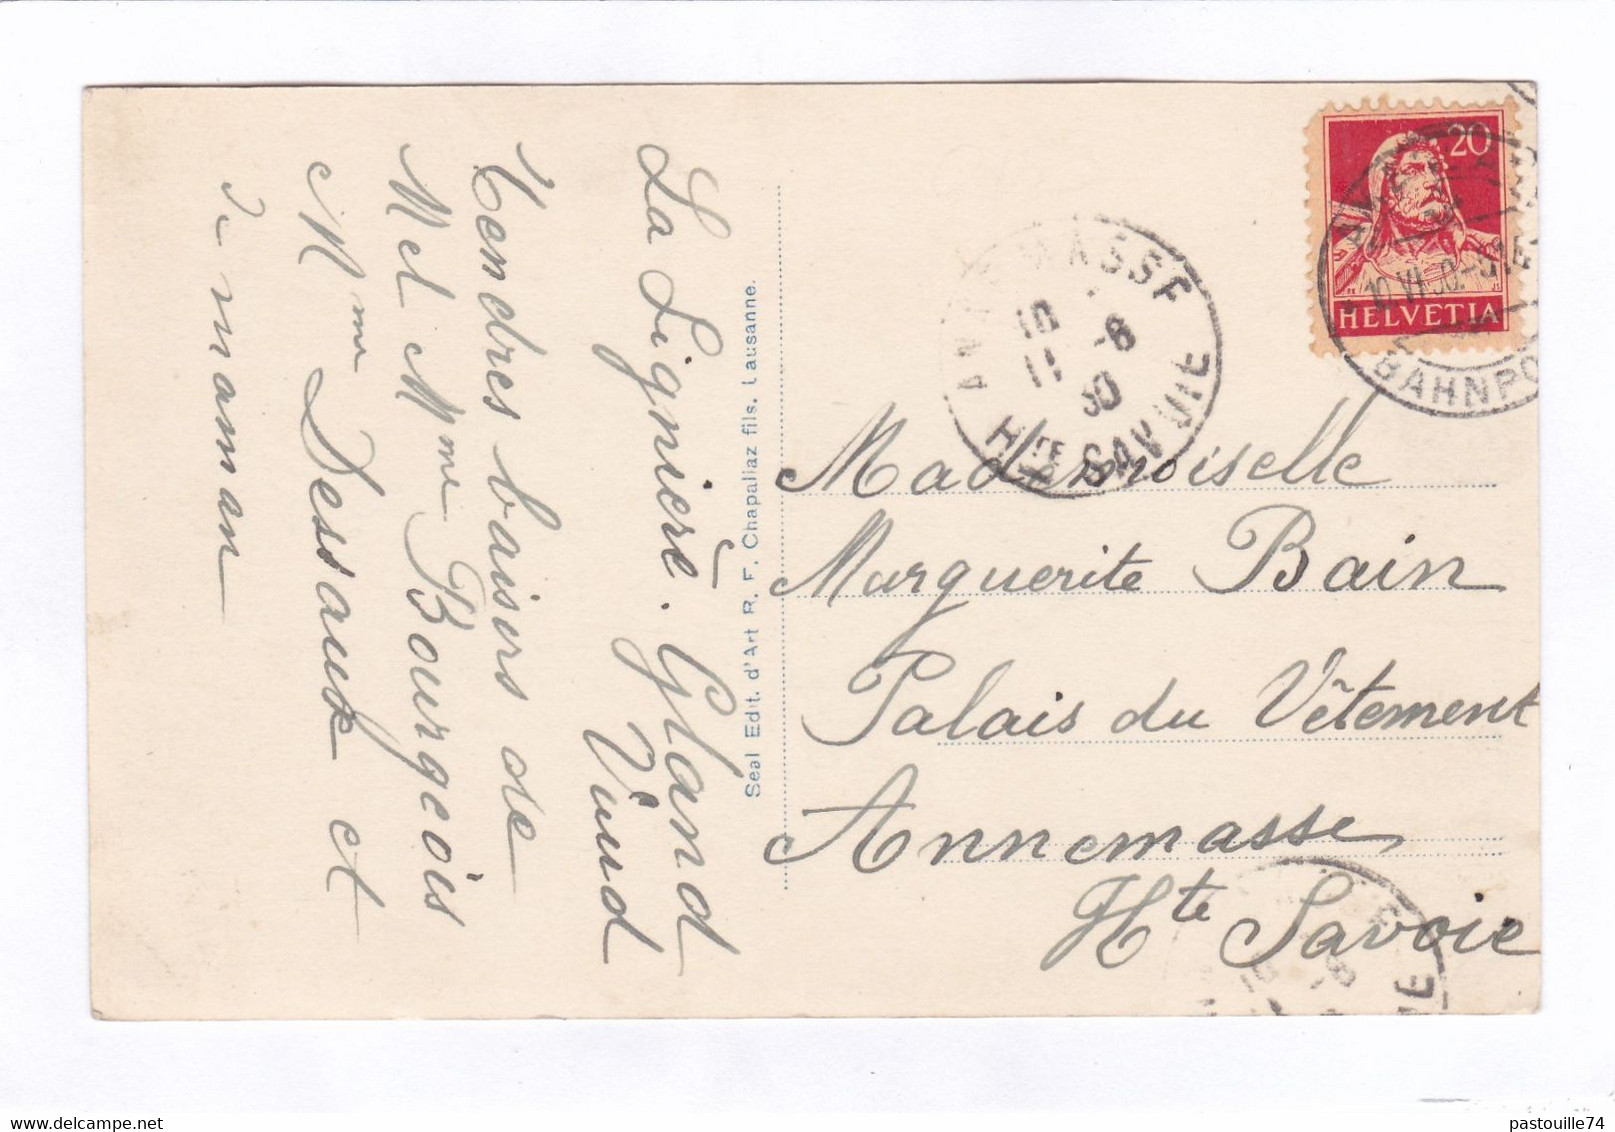 La Lignière. Gland
Vaud
Tendres baisers de
Mel Mme Bourgeois
Mme Dessaux et
de maman
Seal Edit. d'Art R. F. Chapallaz fils. Lausanne.
20
HELVETIA
10.VI.30
BAHNPO
ANNEMASSE
10
11 -6
30
HTE SAVOIE
Mademoiselle
Marguerite Bain
Palais du Vêtement
Annemasse
Hte Savoie
10
-6
IE
pastouille74